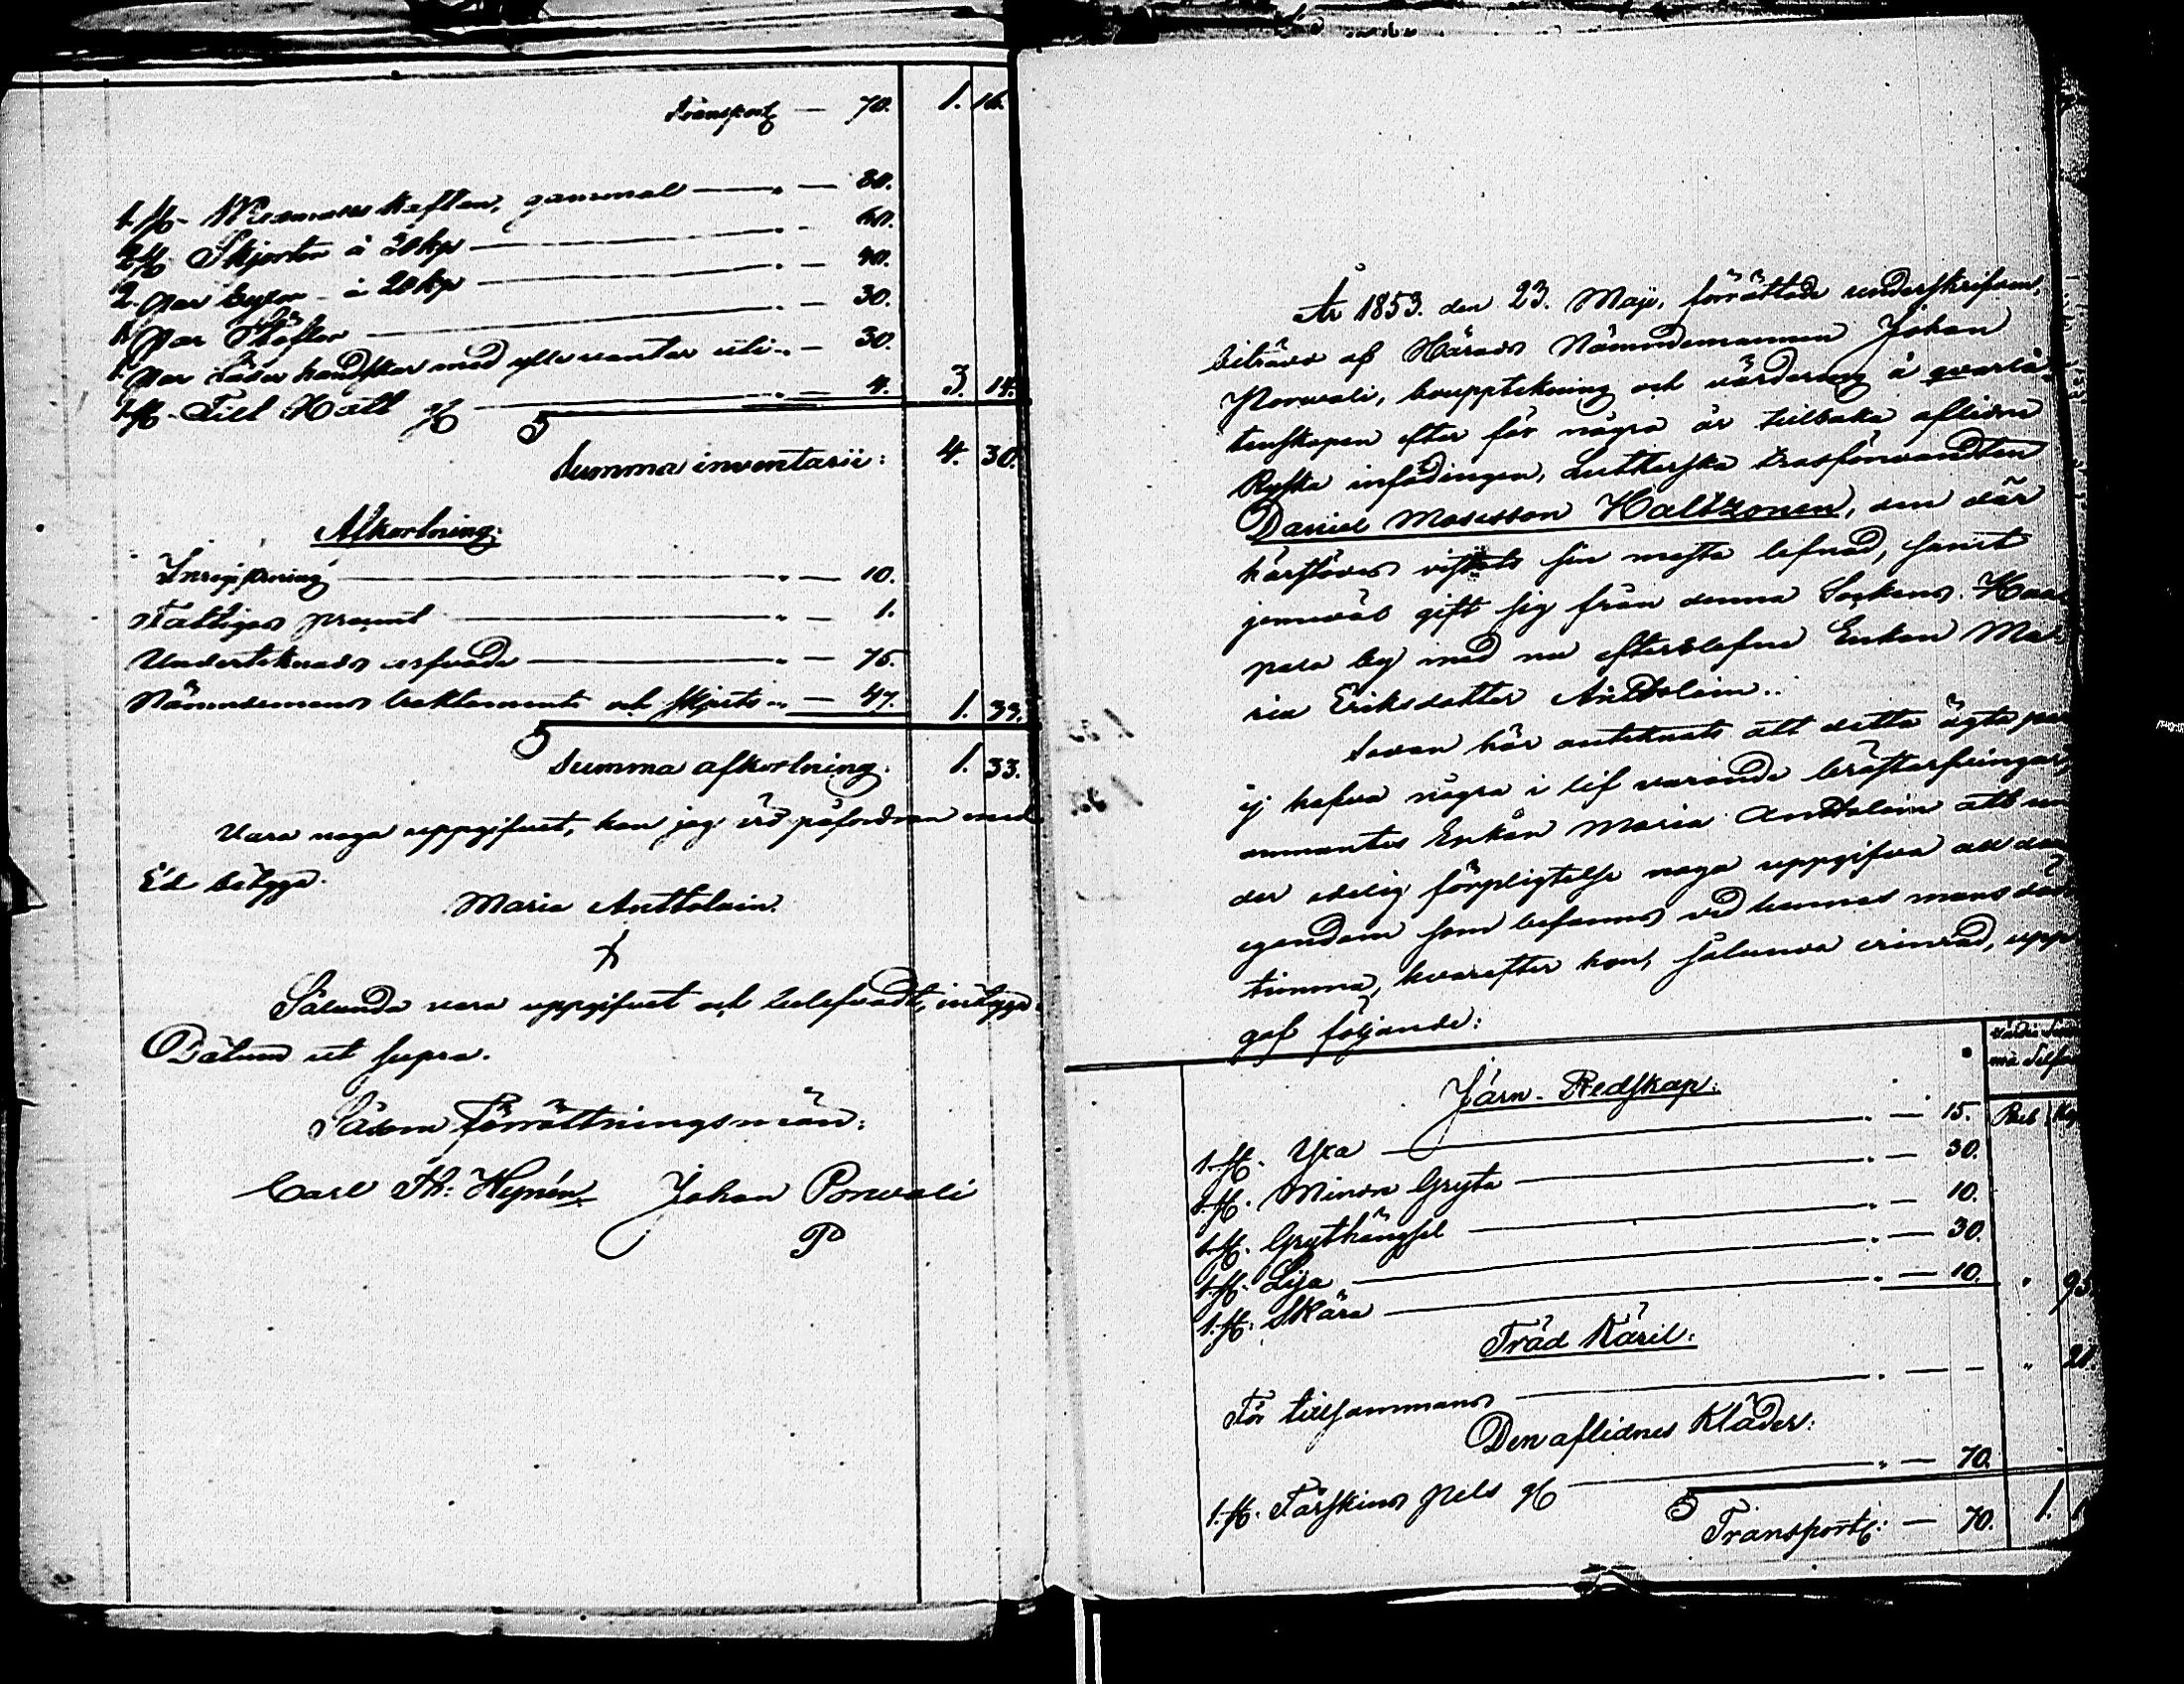 Transport — 70. 1. 16.
1 st. Wadmals kaftan, gammal — 80.
2 st. Skjorton à 30 kp — 60.
2. par byxor à 20 kp — 40.
1 par Stöflor — 30.
1. par Läder handskar med ylle vantar uti — 30.
1 st. Filt Hatt — 4. 3. 14.
Summa inventarii: 4. 30.
Afkortning:
— 10.
Fattiges procent — 1.
Undertecknads arfvode — 75.
Nämndemans traktamente och skjuts — 47. 1. 33.
Summa afkortning. 1. 33.
Vara noga uppgifvet, kan jag vid påfordran med
Ed betyga.
Maria Anttolain.
Sålunda vara uppgifvet och befvadt, intygga.
Datum ut supra.
Såsom Förrättningsmän:
Carl Th: Hynén Johan Porvali
P
År 1853. den 23. Maji, förrättade underskrifven,
biträdd af Härads Nämndemannen Johan
Porvali, bouppteckning och värdering å qvarlå-
tenskapen efter för några år tillbaka aflidne
Ryska infödingen, Lutherska trosförvandten
Daniel Mosesson Haltzonen, den där
härstädes vistats sin mesta lefnad, samt
jemväl gift sig från denna Sockens
by med nu efterlefvande Enkan Ma-
ria Eriksdotter Anttolain.
Sedan här antecknats att detta ägta par
ej hafva några i lif varande bröstarfvingar,
anmantes Enkan Maria Anttolain att un
der edelig förpligtelse noga uppgifva all den
egendom som befanns vid hennes mans död
timma, hvarefter hon, sålunda erinrad, upp
gaf följande:
Järn-Redskap:
Rub Kop
1. st. Yxa — 15.
1. st. Mindre Gryta — 30.
1. st. Grythängsel — 10.
1. st. Lija — 30.
1. st. Skära — 10. 95.
Träd Käril:
För tillsammans — 21.
Den aflidnes Kläder:
1. st. Fårskinns pels — 70.
Transport: — 70. 1.